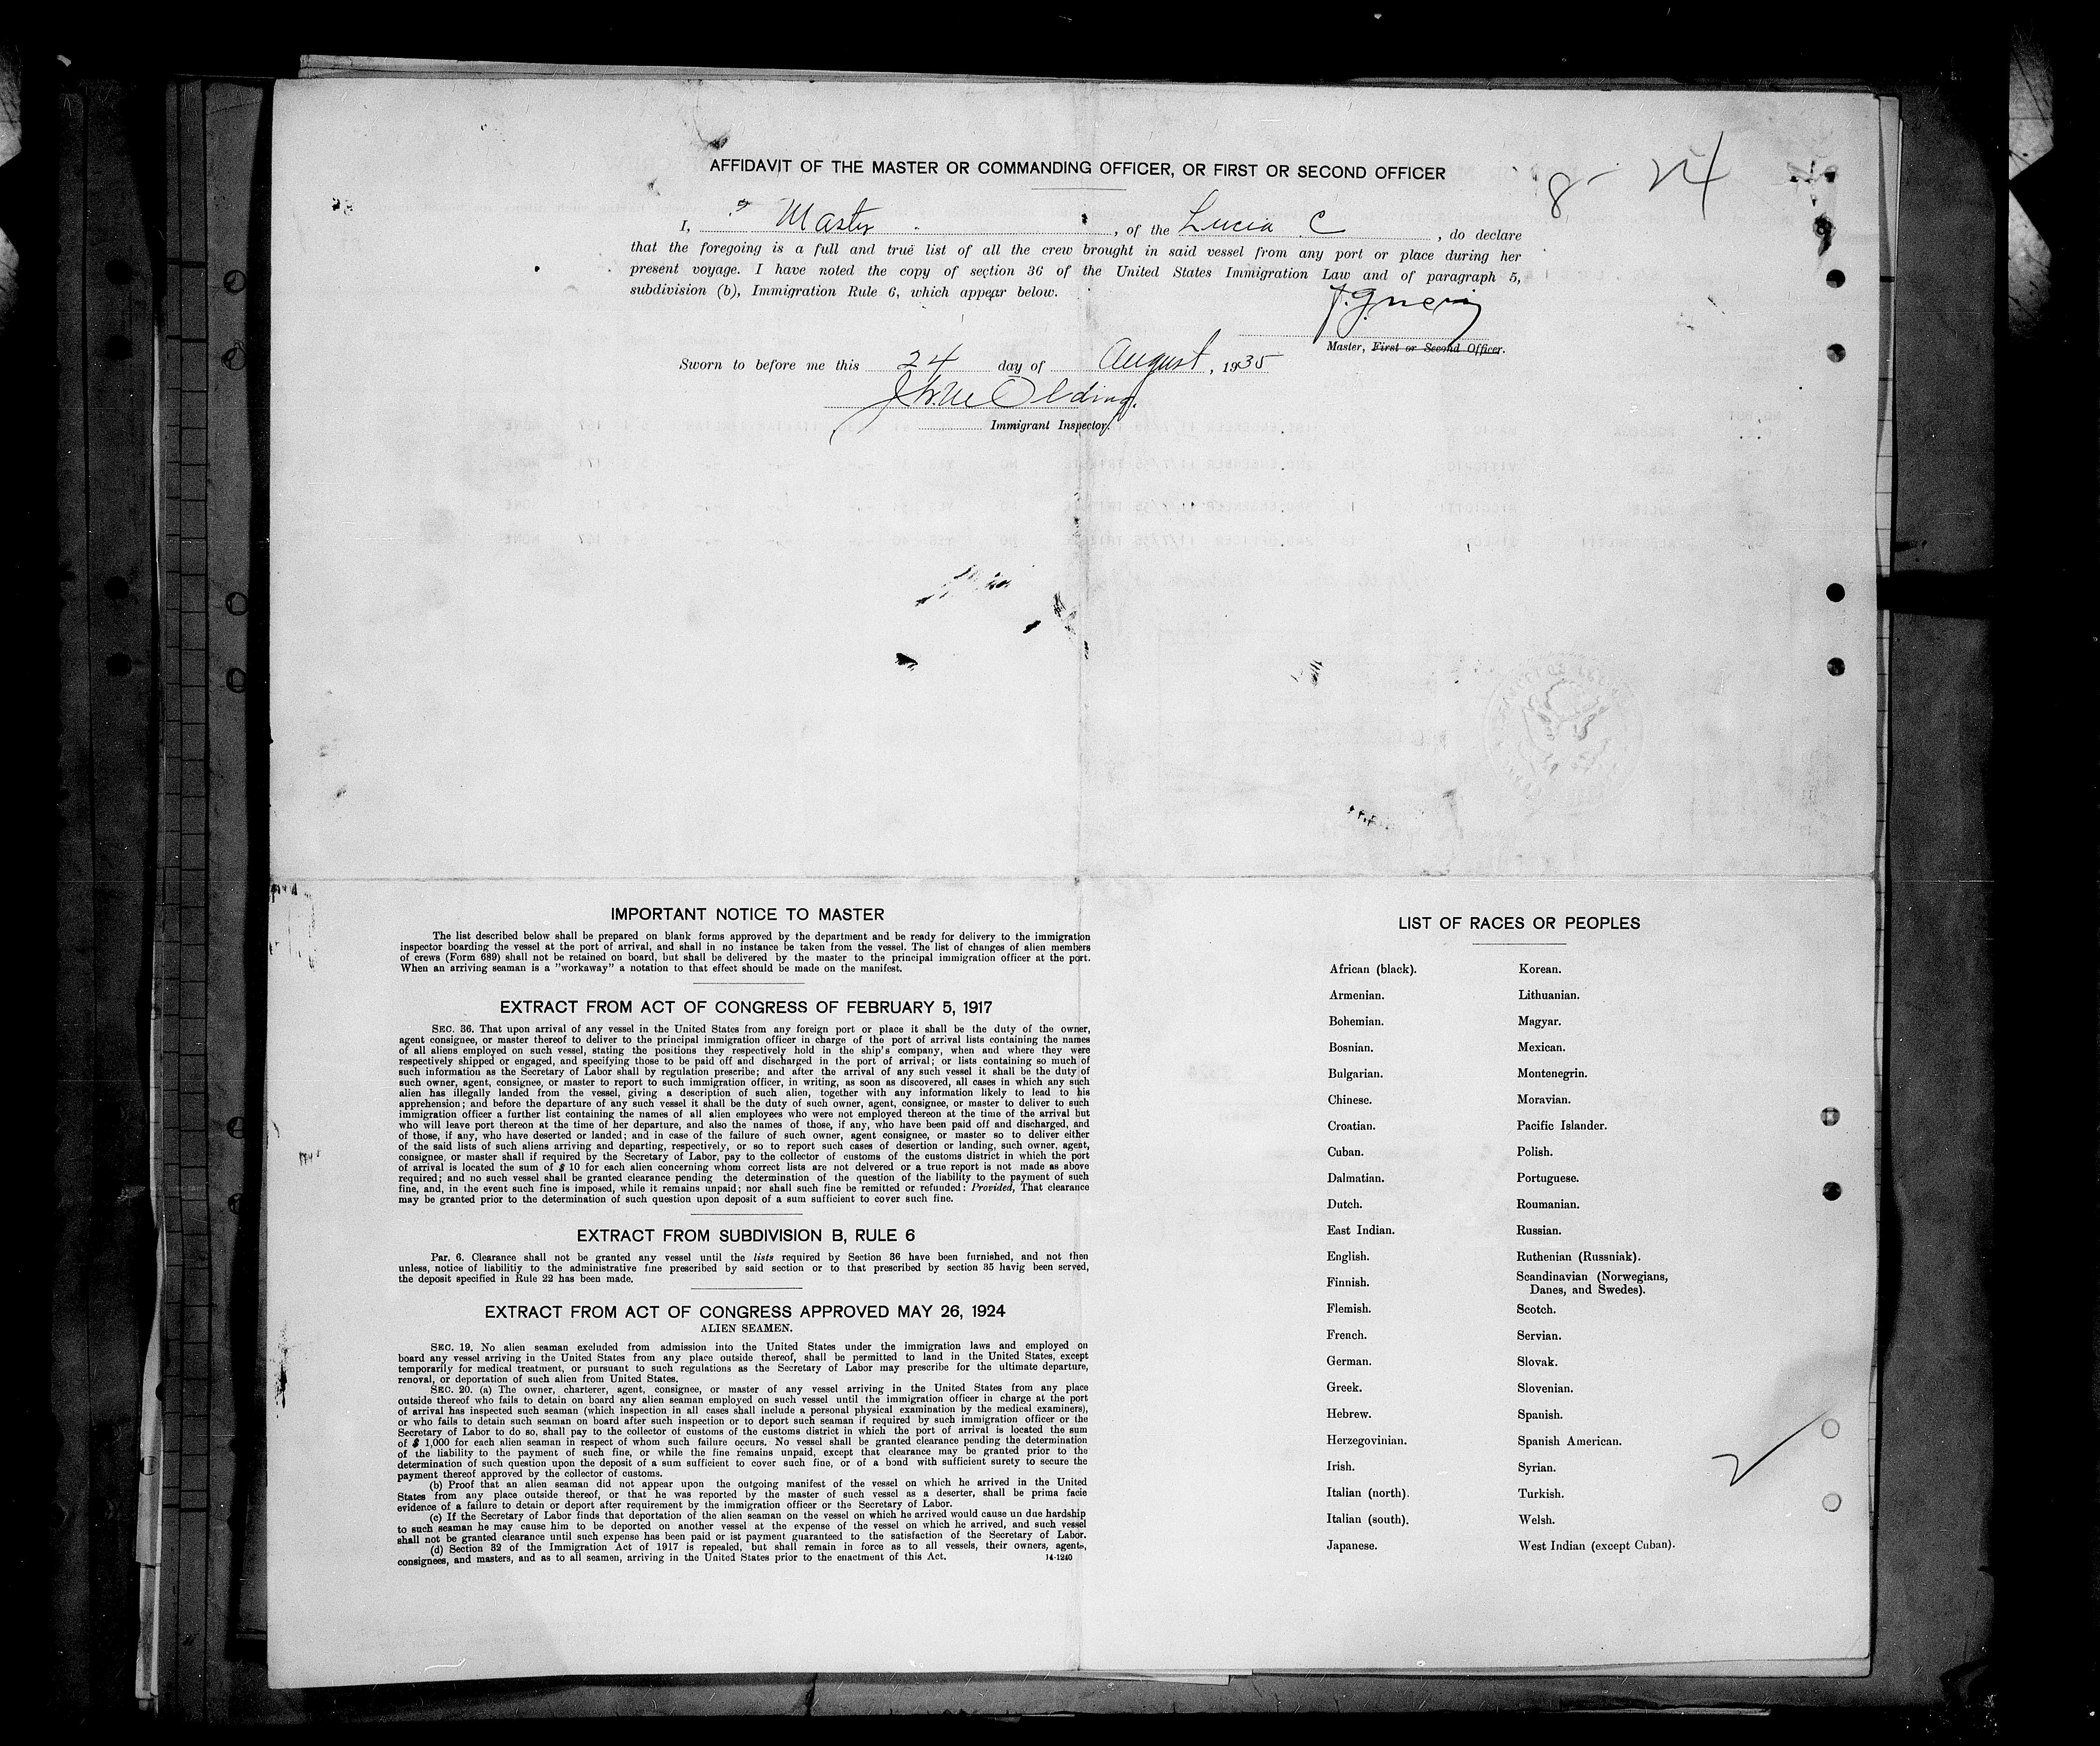 AFFIDAVIT OF THE MASTER OR COMMANDING OFFICER, OR FIRST OR SECOND OFFICER
8 - 24
I, Master, of the Lucia C, do declare
that the foregoing is a full and true list of all the crew brought in said vessel from any port or place during her
present voyage. I have noted the copy of section 36 of the United States Immigration Law and of paragraph 5,
subdivision (b), Immigration Rule 6, which appear below.
Master, First or Second Officer.
Sworn to before me this 24 day of August, 1935
Olding.
Immigrant Inspector.
IMPORTANT NOTICE TO MASTER
The list described below shall be prepared on blank forms approved by the department and be ready for delivery to the immigration
inspector boarding the vessel at the port of arrival, and shall in no instance be taken from the vessel. The list of changes of alien members
of crews (Form 689) shall not be retained on board, but shall be delivered by the master to the principal immigration officer at the port.
When an arriving seaman is a "workaway" a notation to that effect should be made on the manifest.
EXTRACT FROM ACT OF CONGRESS OF FEBRUARY 5, 1917
SEC. 36. That upon arrival of any vessel in the United States from any foreign port or place it shall be the duty of the owner,
agent consignee, or master thereof to deliver to the principal immigration officer in charge of the port of arrival lists containing the names
of all aliens employed on such vessel, stating the positions they respectively hold in the ship's company, when and where they were
respectively shipped or engaged, and specifying those to be paid off and discharged in the port of arrival; or lists containing so much of
such information as the Secretary of Labor shall by regulation prescribe; and after the arrival of any such vessel it shall be the duty of
such owner, agent, consignee, or master to report to such immigration officer, in writing, as soon as discovered, all cases in which any such
alien has illegally landed from the vessel, giving a description of such alien, together with any information likely to lead to his
apprehension; and before the departure of any such vessel it shall be the duty of such owner, agent, consignee, or master to deliver to such
immigration officer a further list containing the names of all alien employees who were not employed thereon at the time of the arrival but
who will leave port thereon at the time of her departure, and also the names of those, if any, who have been paid off and discharged, and
of those, if any, who have deserted or landed; and in case of the failure of such owner, agent consignee, or master so to deliver either
of the said lists of such aliens arriving and departing, respectively, or so to report such cases of desertion or landing, such owner, agent,
consignee, or master shall if required by the Secretary of Labor, pay to the collector of customs of the customs district in which the port
of arrival is located the sum of $ 10 for each alien concerning whom correct lists are not delvered or a true report is not made as above
required; and no such vessel shall be granted clearance pending the determination of the question of the liability to the payment of such
fine, and, in the event such fine is imposed, while it remains unpaid; nor shall such fine be remitted or refunded: Provided, That clearance
may be granted prior to the determination of such question upon deposit of a sum sufficient to cover such fine.
EXTRACT FROM SUBDIVISION B, RULE 6
Par. 6. Clearance shall not be granted any vessel until the lists required by Section 36 have been furnished, and not then
unless, notice of liabilitiy to the administrative fine prescribed by said section or to that prescribed by section 35 havig been served,
the deposit specified in Rule 22 has been made.
EXTRACT FROM ACT OF CONGRESS APPROVED MAY 26, 1924
ALIEN SEAMEN.
SEC. 19. No alien seaman excluded from admission into the United States under the immigration laws and employed on
board any vessel arriving in the United States from any place outside thereof, shall be permitted to land in the United States, except
temporarily for medical treatment, or pursuant to such regulations as the Secretary of Labor may prescribe for the ultimate departure,
renoval, or deportation of such alien from United States.
SEC. 20. (a) The owner, charterer, agent, consignee, or master of any vessel arriving in the United States from any place
outside thereof who fails to detain on board any alien seaman employed on such vessel until the immigration officer in charge at the port
of arrival has inspected such seaman (which inspection in all cases shall include a personal physical examination by the medical examiners),
or who fails to detain such seaman on board after such inspection or to deport such seaman if required by such immigration officer or the
Secretary of Labor to do so, shall pay to the collector of customs of the customs district in which the port of arrival is located the sum
of $ 1,000 for each alien seaman in respect of whom such failure occurs. No vessel shall be granted clearance pending the determination
of the liability to the payment of such fine, or while the fine remains unpaid, except that clearance may be granted prior to the
determination of such question upon the deposit of a sum sufficient to cover such fine, or of a bond with sufficient surety to secure the
payment thereof approved by the collector of customs.
(b) Proof that an alien seaman did not appear upon the outgoing manifest of the vessel on which he arrived in the United
States from any place outside thereof, or that he was reported by the master of such vessel as a deserter, shall be prima facie
evidence of a failure to detain or deport after requirement by the immigration officer or the Secretary of Labor.
(c) If the Secretary of Labor finds that deportation of the alien seaman on the vessel on which he arrived would cause un due hardship
to such seaman he may cause him to be deported on another vessel at the expense of the vessel on which he arrived, and such vessel
shall not be granted clearance until such expense has been paid or ist payment guaranteed to the satisfaction of the Secretary of Labor.
(d) Section 32 of the Immigration Act of 1917 is repealed, but shall remain in force as to all vessels, their owners, agents,
consignees, and masters, and as to all seamen, arriving in the United States prior to the enactment of this Act.
14-1240
LIST OF RACES OR PEOPLES
African (black).
Armenian.
Bohemian.
Bosnian.
Bulgarian.
Chinese.
Croatian.
Cuban.
Dalmatian.
Dutch.
East Indian.
English.
Finnish.
Flemish.
French.
German.
Greek.
Hebrew.
Herzegovinian.
Irish.
Italian (north).
Italian (south).
Japanese.
Korean.
Lithuanian.
Magyar.
Mexican.
Montenegrin.
Moravian.
Pacific Islander.
Polish.
Portuguese.
Roumanian.
Russian.
Ruthenian (Russniak).
Scandinavian (Norwegians,
Danes, and Swedes).
Scotch.
Servian.
Slovak.
Slovenian.
Spanish.
Spanish American.
Syrian.
Turkish.
Welsh.
West Indian (except Cuban).